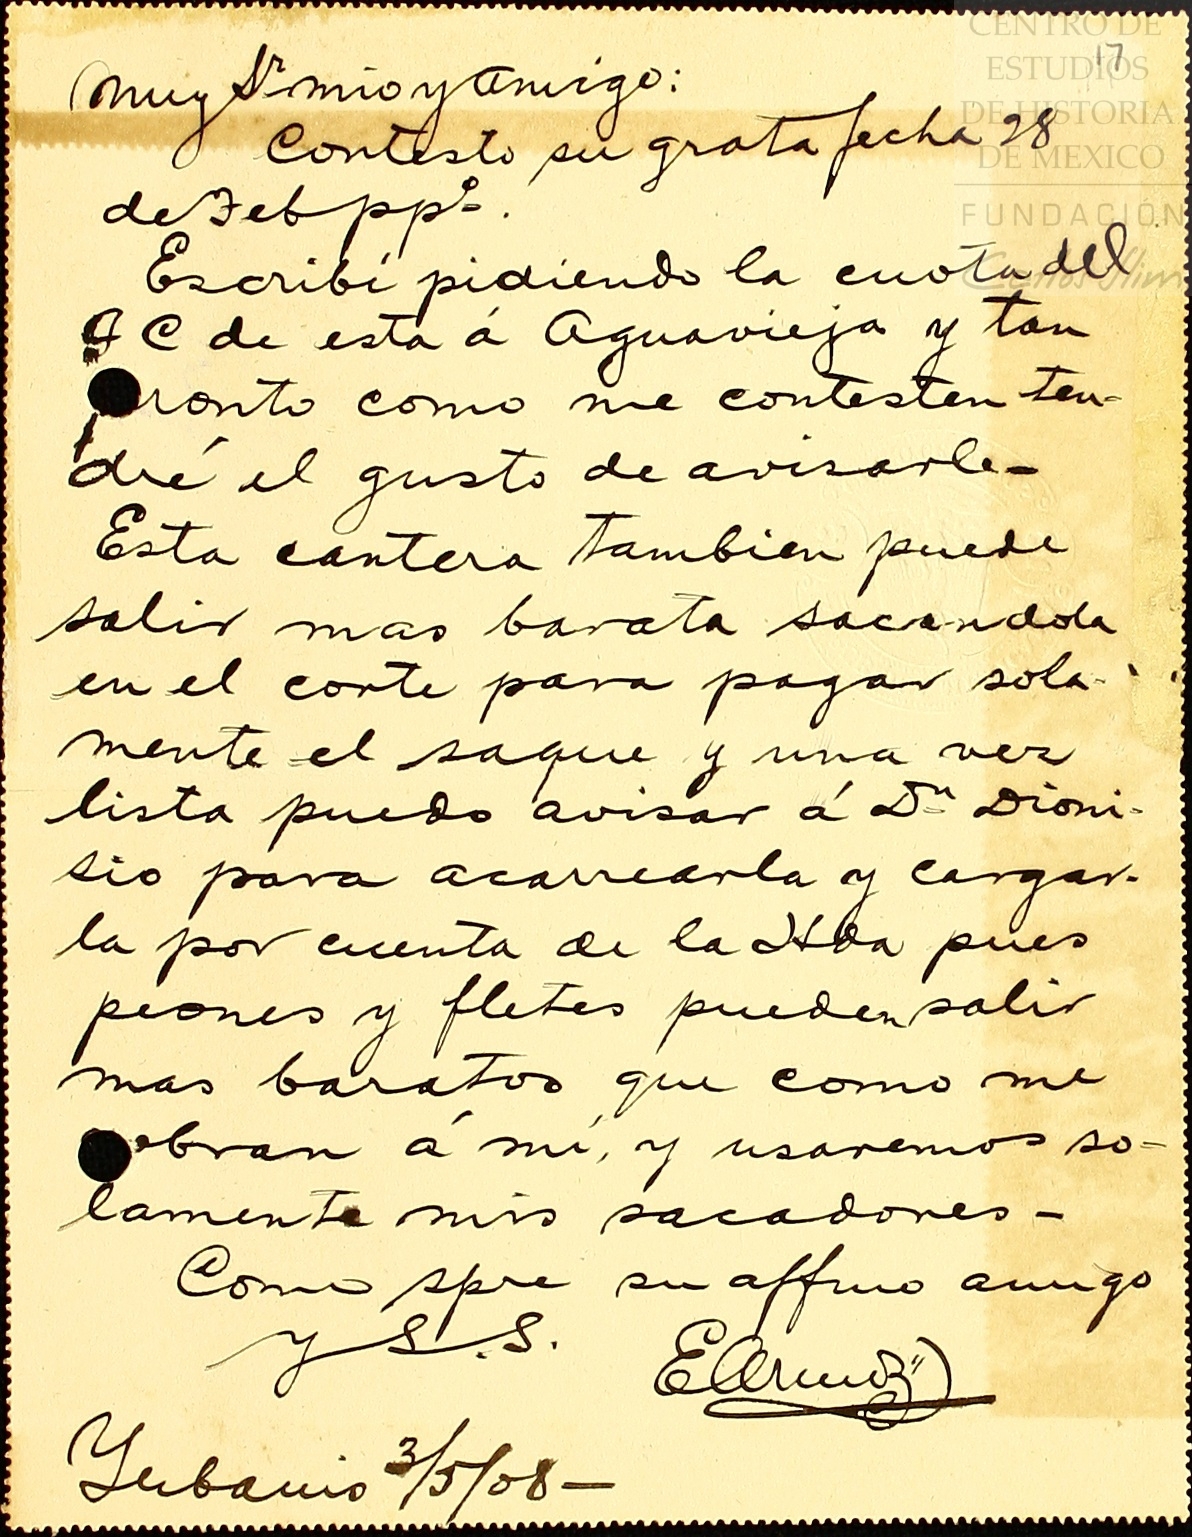 CENTRO DE
ESTUDIOS
DE HISTORIA
DE MEXICO
FUNDACIÓN
Carlos Slim
17
Muy Sr mio y Amigo:
Contesto su grata fecha 28
de Feb ppº.
Escribí pidiendo la cuota del
F C de esta á Aguavieja y tan
pronto como me contesten ten-
dré el gusto de avisarle-
Esta cantera tambien puede
salir mas barata sacandola
en el corte para pagar sola-
mente el saque y una vez
lista puedo avisar á Dn Dioni-
sio para acarrearla y cargar-
la por cuenta de la Hda pues
peones y fletes pueden salir
mas baratos que como me
cobran á mí, y usaremos so-
lamente mis sacadores-
Como spre su affmo amigo
y S.S.
3/5/08-